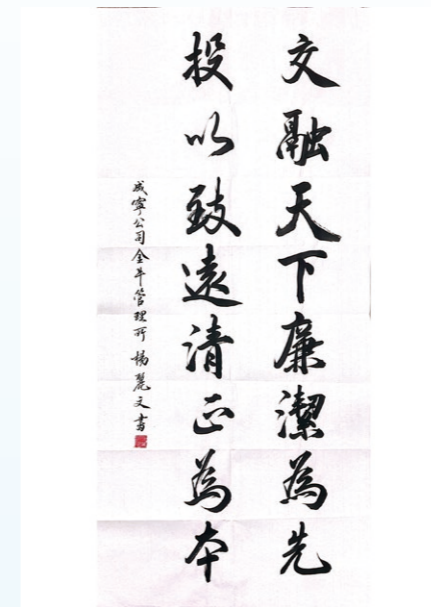 交融天下廉潔為先
投以致遠清正為本
咸寧公司金平管理所 楊麗文書